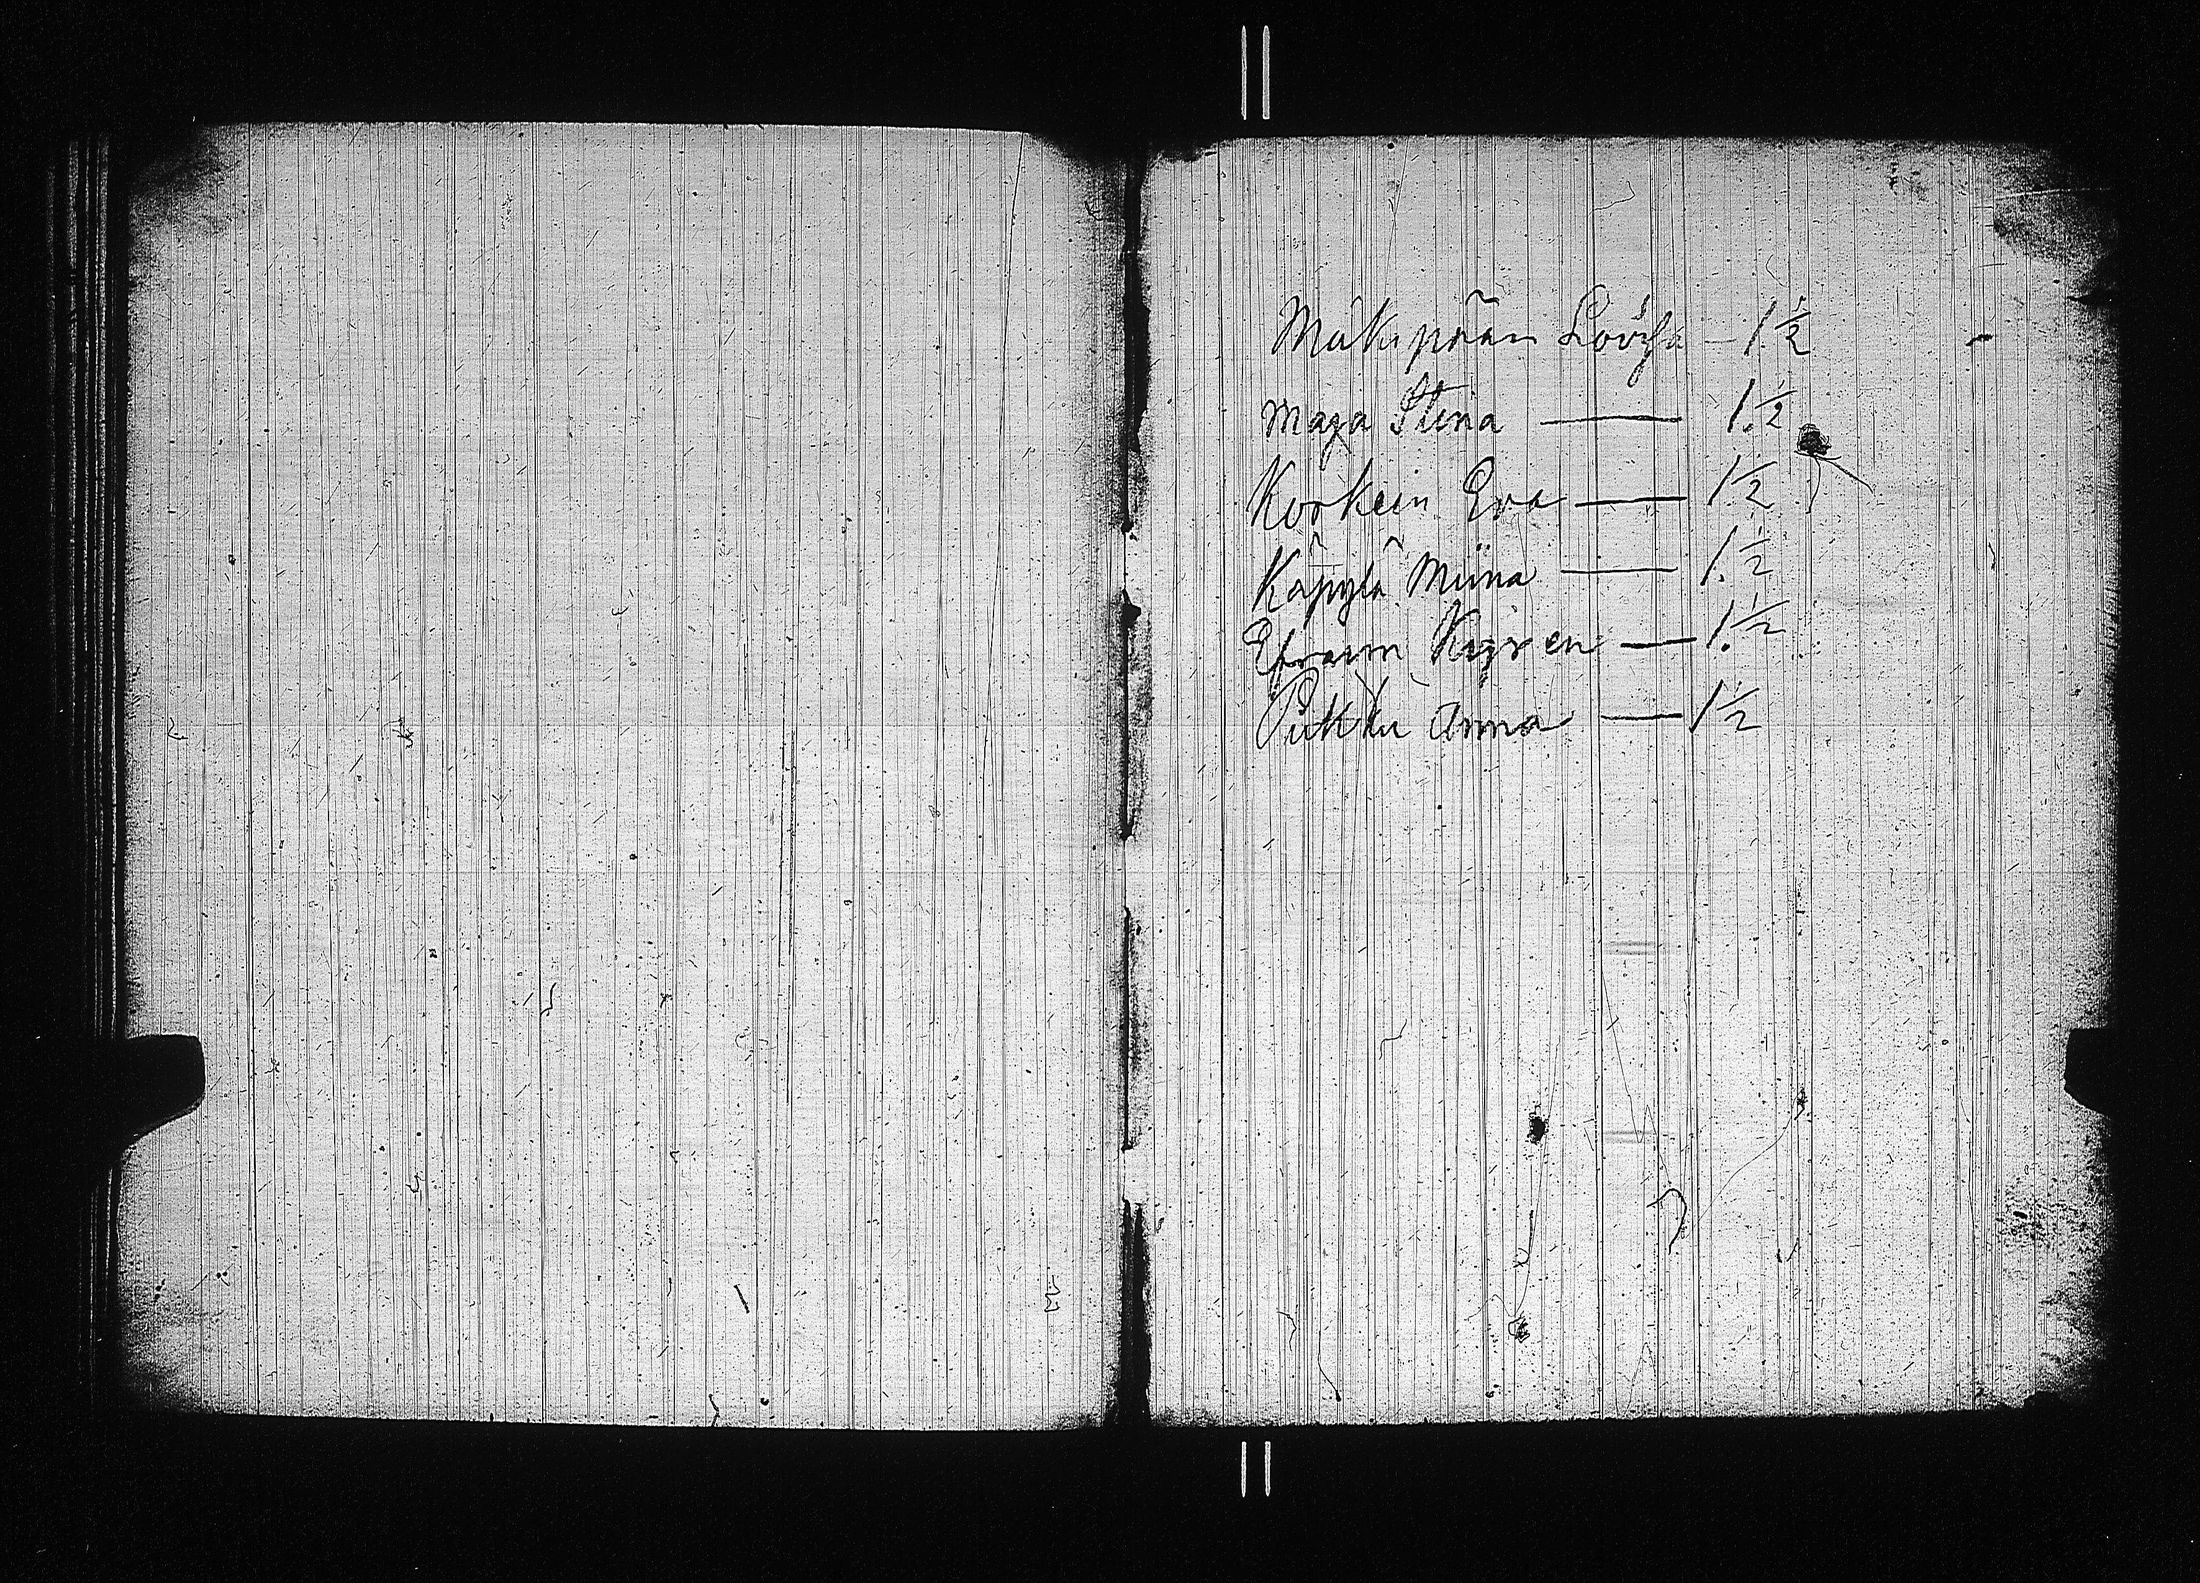 Mäkipään Lovisa — 1 ½
Maja Stina — 1. ½
Korkein Eva — 1 ½
Käpylä Miina — 1. ½
Efraim Kaisen — 1. ½
Pitkän Anna — 1 ½